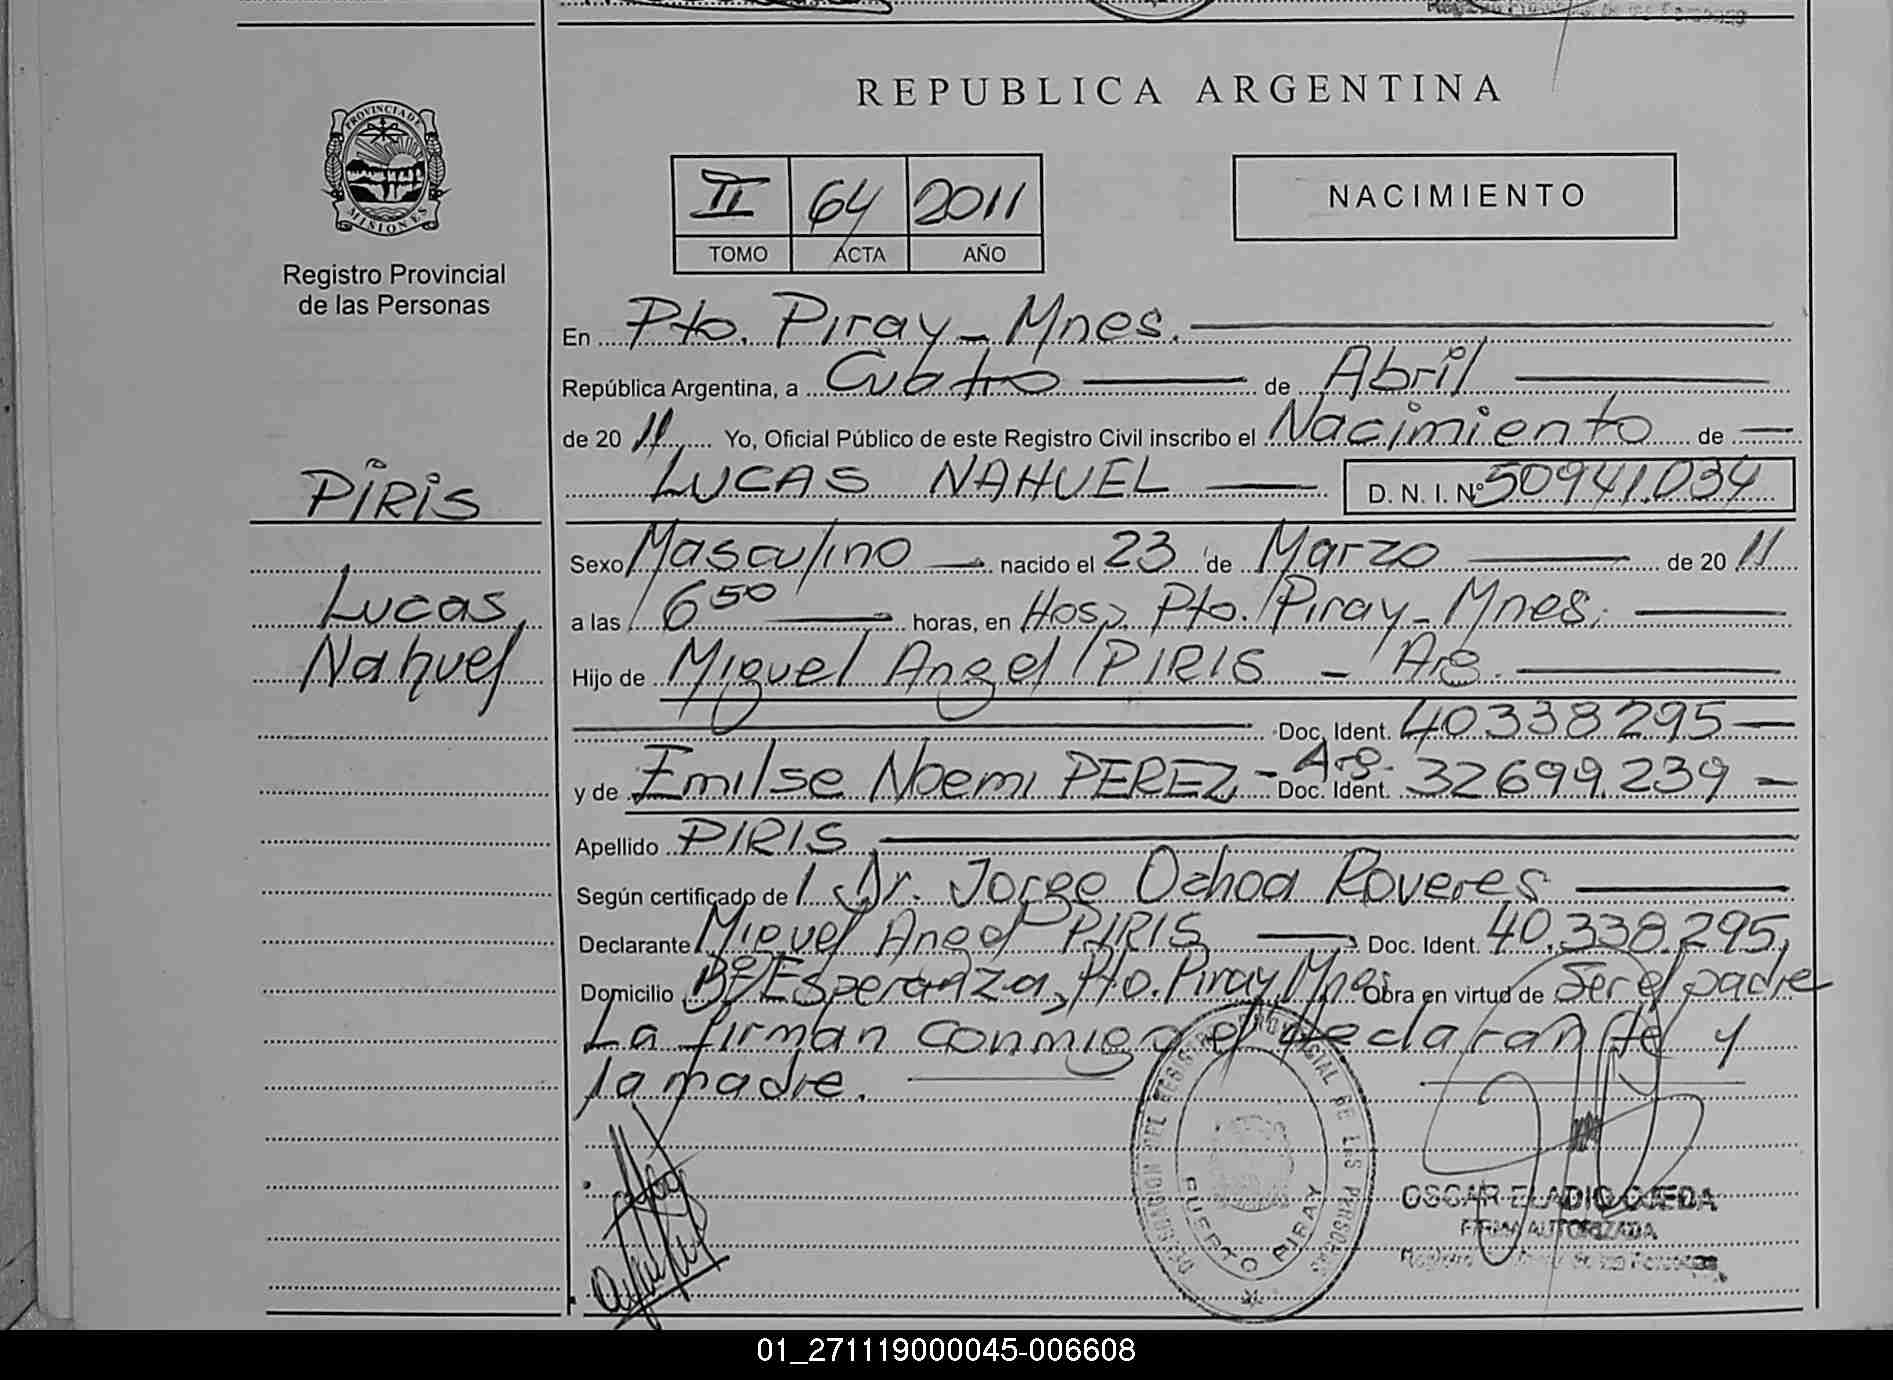 REPUBLICA ARGENTINA
PROVINCIA DE
MISIONES
Registro Provincial
de las Personas
II 64 2011
TOMO ACTA AÑO
NACIMIENTO
En Pto. Piray - Mnes.
República Argentina, a Cuatro de Abril
de 2011 Yo, Oficial Público de este Registro Civil inscribo el Nacimiento de
LUCAS NAHUEL D. N. I. Nº 50941.034
PIRIS
Lucas
Nahuel
Sexo Masculino nacido el 23 de Marzo de 2011
a las 6 50 horas, en Hosp. Pto. Piray - Mnes.
Hijo de Miguel Angel PIRIS - Arg.
Doc. Ident. 40338295
y de Emilse Noemi PEREZ - Arg. Doc. Ident. 32699.239
Apellido PIRIS
Según certificado de Dr. Jorge Ochoa Roveres
Declarante Miguel Angel PIRIS Doc. Ident. 40.338.295,
Domicilio Bº Esperanza, Pto. Piray, Mnes. Obra en virtud de Ser el padre
La firman conmigo el declarante y
la madre.
PROVINCIAL DE LAS PERSONAS
PUERTO PIRAY
OSCAR ELADIO OJEDA
FIRMA AUTORIZADA
Registro de las Personas
01_271119000045-006608